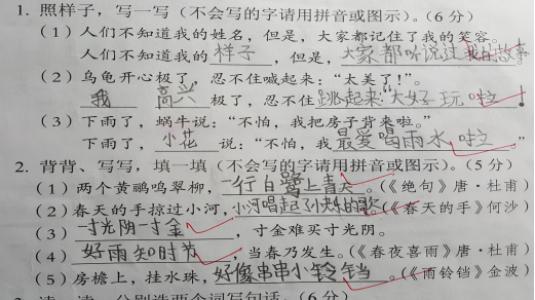 1. 照样子，写一写（不会写的字请用拼音或图示）。（6 分）
（1）人们不知道我的姓名，但是，大家都记住了我的笑容。
人们不知道我的 样子 ，但是， 大家都听说过我的故事
（2）乌龟开心极了，忍不住喊起来：“太美了！”。
我 高兴 极了，忍不住 跳起来“太好玩啦！
（3）下雨了，蜗牛说：“不怕，我把房子背来啦。”
下雨了， 小花 说：“不怕，我 最爱喝雨水啦 ”
2. 背背、写写，填一填（不会写的字请用拼音或图示）。（5 分）
（1）两个黄鹂鸣翠柳， 一行白鹭上青天 。（《绝句》唐·杜甫）
（2）春天的手掠过小河， 小河唱起了快乐的歌 。（《春天的手》何沙）
（3） 寸光阴一寸金 ，寸金难买寸光阴。
（4） 好雨知时节 ，当春乃发生。（《春夜喜雨》唐·杜甫）
（5）房檐上，挂水珠， 好像串串小铃铛 。（《雨铃铛》金波）